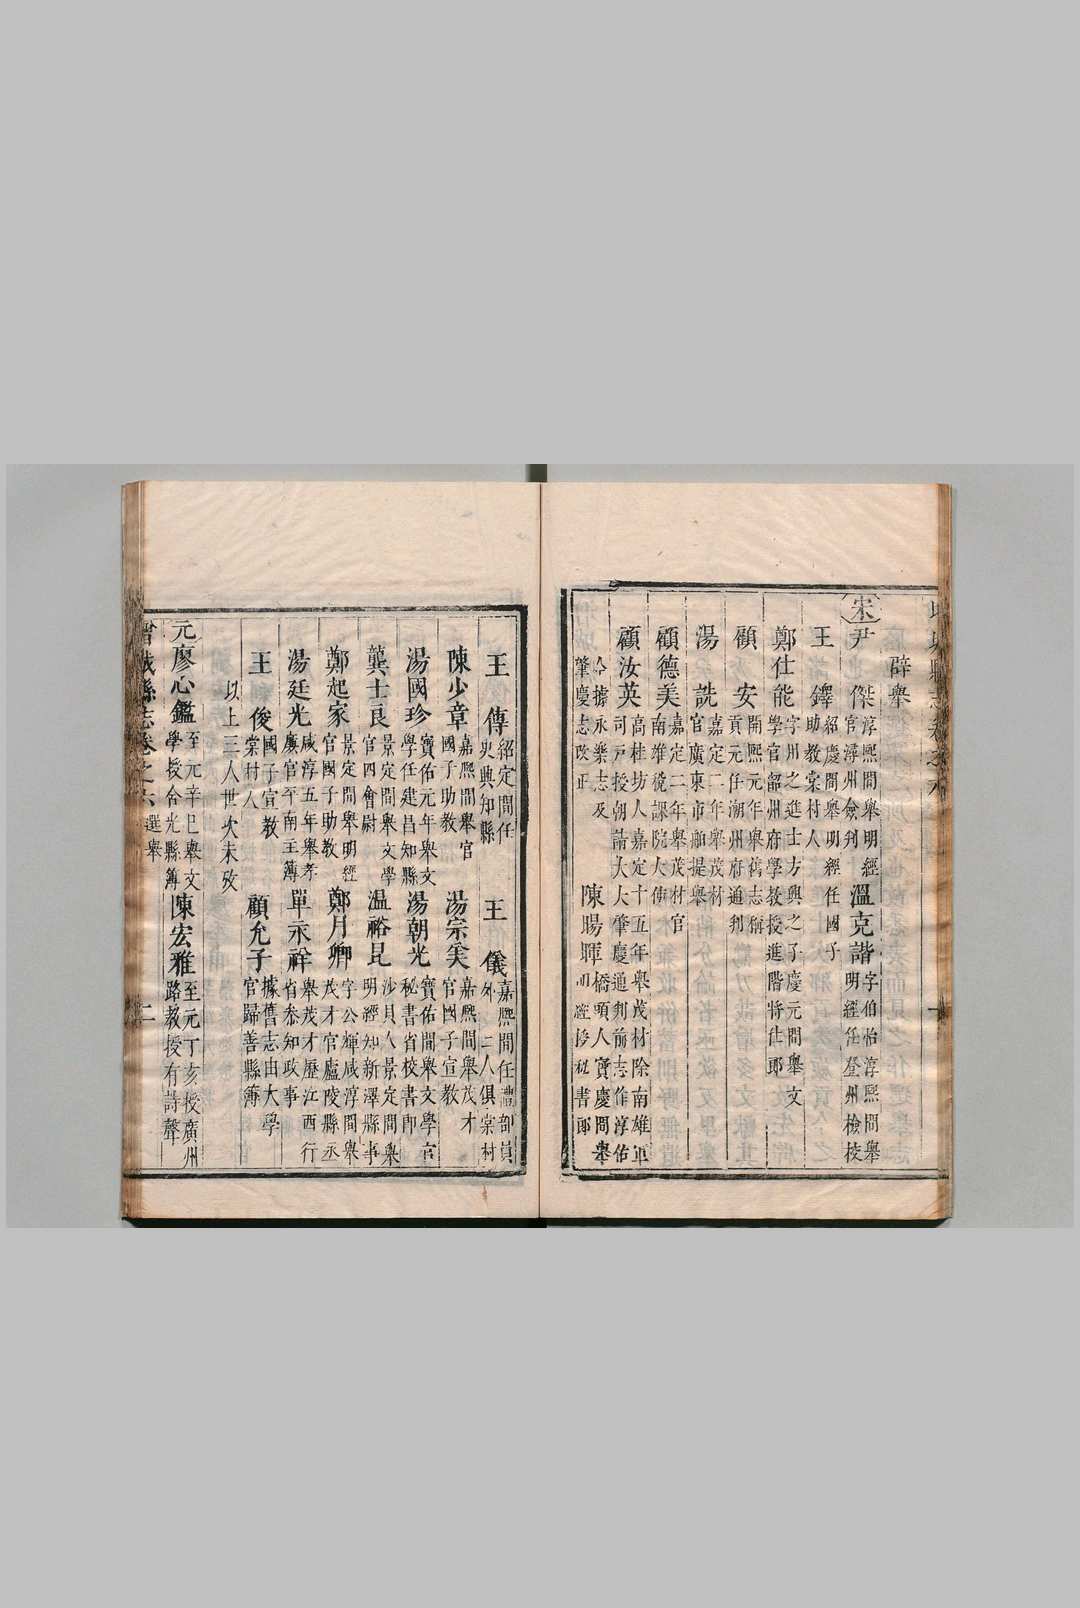 辟舉
宋尹 傑淳熙間舉明經官潯州僉判 溫克諧字伯怡淳熙間舉明經任登州檢校
王 鐸紹慶間舉明經任國子助教棠村人
鄭仕能字州之進士方興之子慶元間舉文學官韶州府學教授進階將仕郎
顧 安開熙元年舉舊志稱貢元任潮州府通判
湯 詵嘉定二年舉茂材官廣東市舶提舉
顧德美嘉定二年舉茂材官南雄稅課院大使
顧汝英高桂坊人嘉定十五年舉茂材除南雄軍司戸授朝請大夫肇慶通判前志作淳佑
今據永樂志及肇慶志改正 陳暘暉橋頭人寶慶間舉明經授秘書郎
王 傳紹定間任吏典知縣 王 儀嘉熙間任禮部員外二人俱棠村
陳少章嘉熙間舉官國子助教 湯宗奕嘉熙間舉茂才官國子宣教
湯國珍寶佑元年舉文學任建昌知縣 湯朝光寶佑間舉文學官秘書省校書郎
龔士良景定間舉文學官四會尉 溫裕昆沙貝人景定間舉明經知新澤縣事
鄭起家景定間舉明經官國子助教 鄭月卿字公輝咸淳間舉茂才官廬陵縣丞
湯廷光咸淳五年舉孝廉官平南主簿 單示祥舉茂才歷江西行省參知政事
王 俊國子宣教棠村人 顧允子據舊志由大學官歸善縣簿
以上三人世次未攷
元廖心鑑至元辛巳舉文學授含光縣簿 陳宏雅至元丁亥授廣州路教授有詩聲
增城縣志卷之六 選舉 二